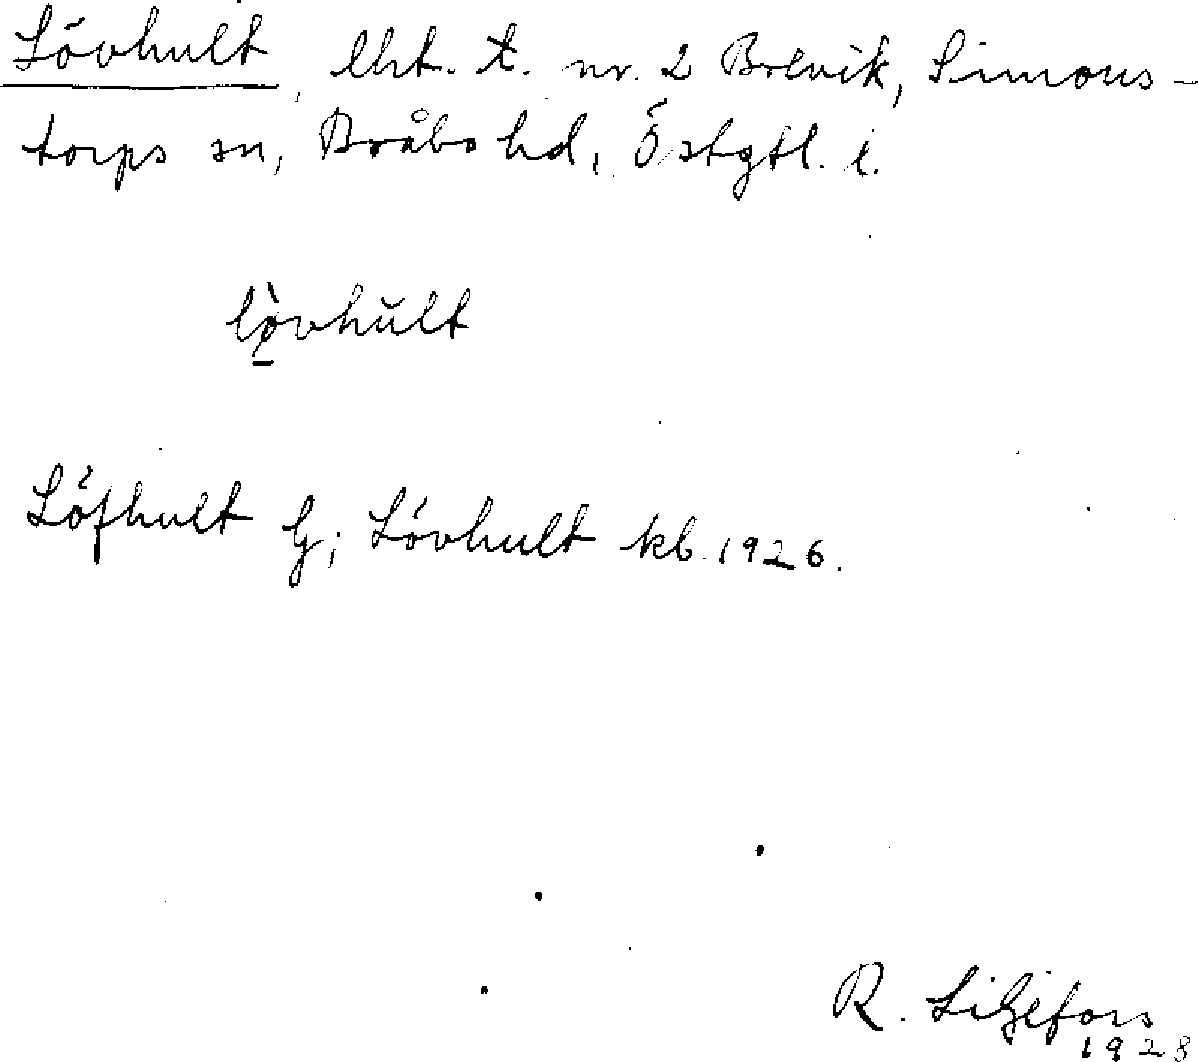 Lövhult, lht. t. nr. 2 Brevik, Simons-
torps sn, Bråbo hd, Östgtl. l.
Löfhult G; Lövhult kb. 1926.
R. Liljefors
1928